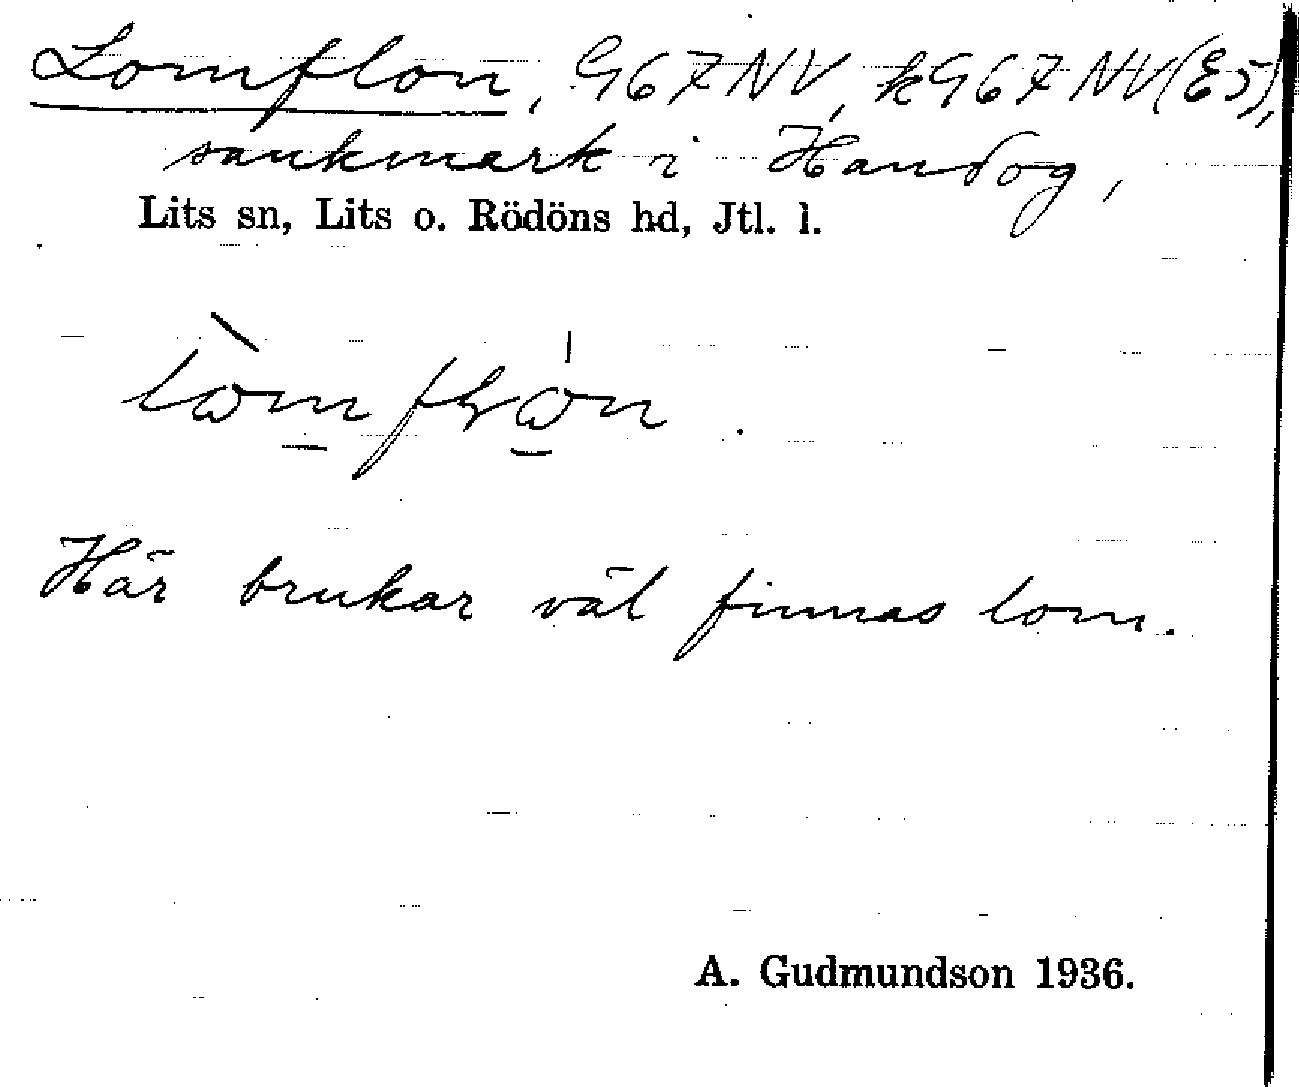 Lomflon, G67NV, kG67NV(E5),
sankmark i Handog,
Lits sn, Lits o. Rödöns hd, Jtl. l.
Här brukar väl finnas lom.
A. Gudmundson 1936.